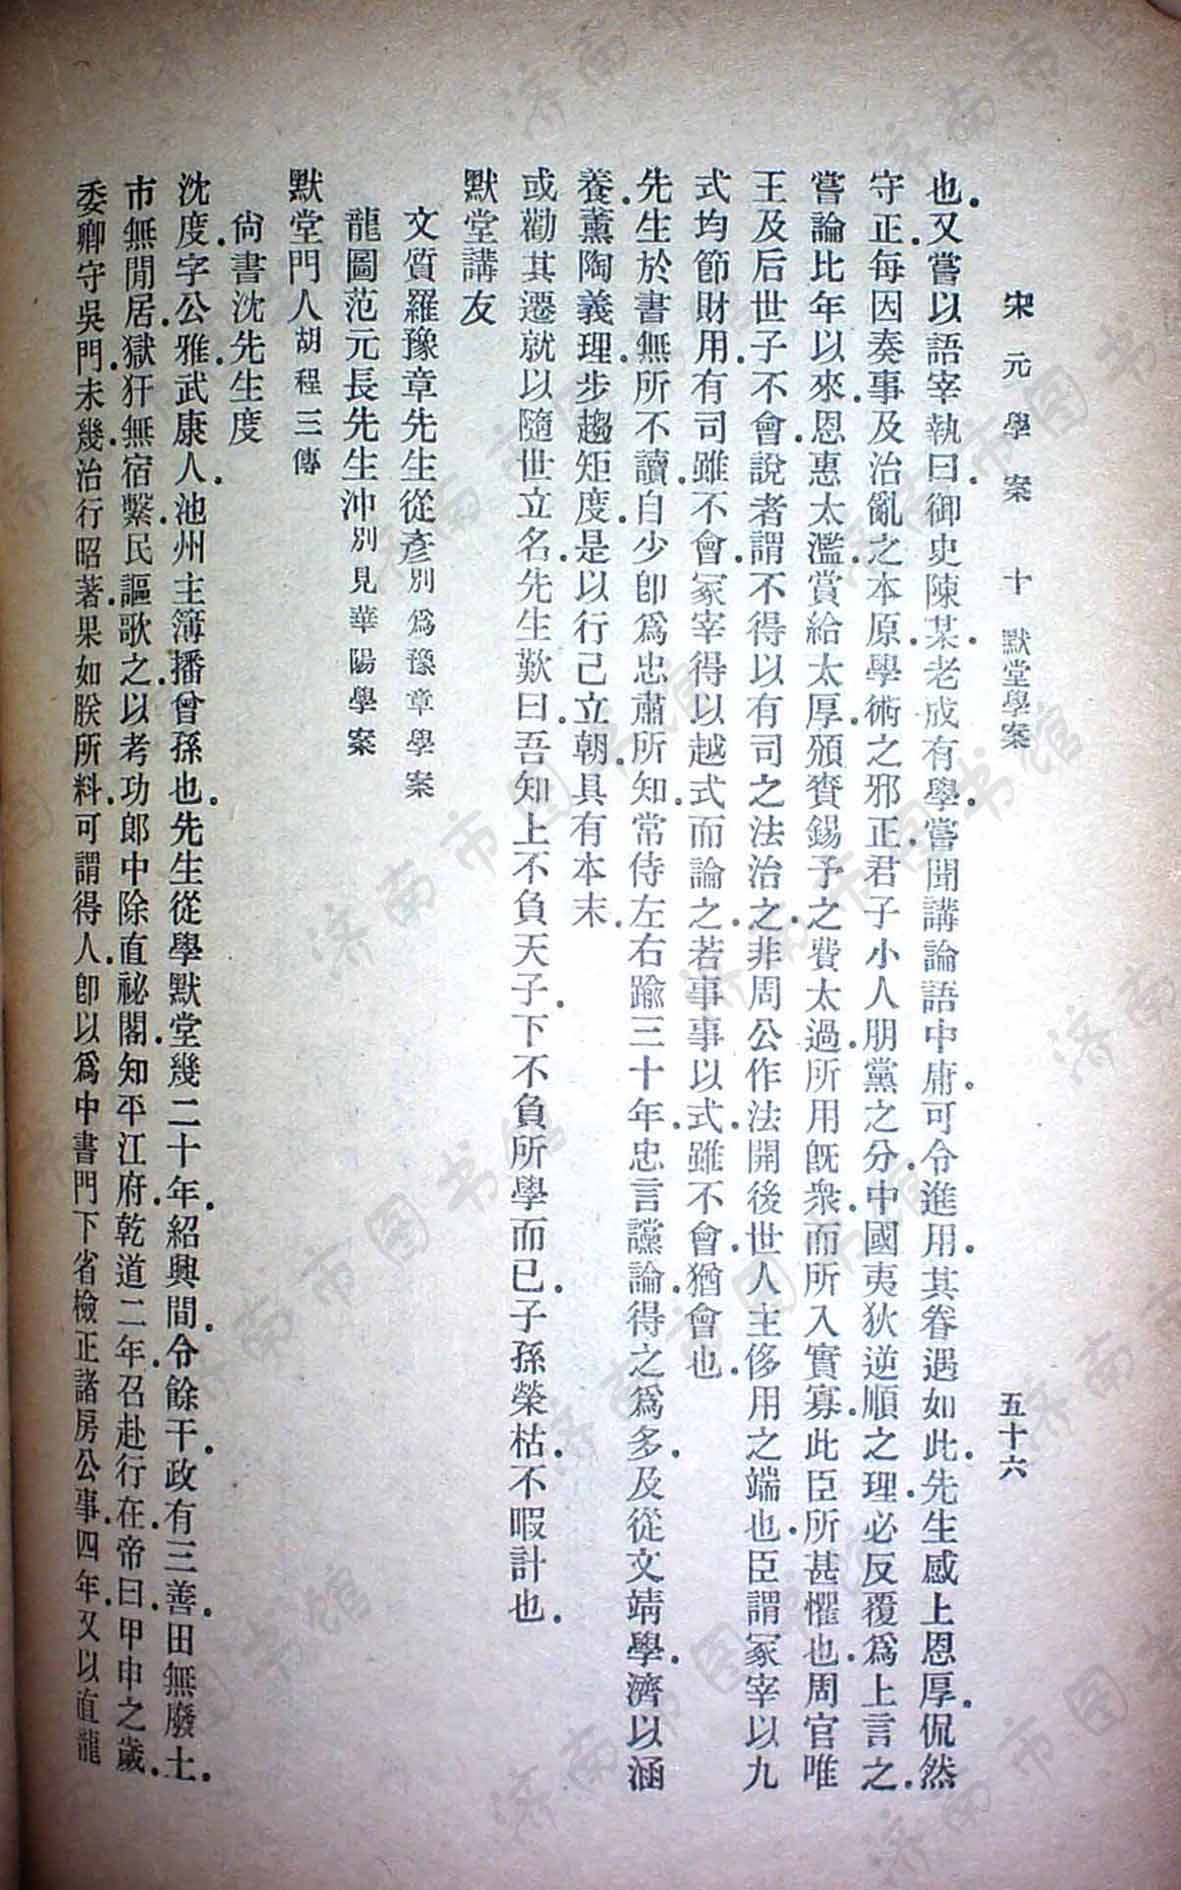 宋元學案 十 默堂學案 五十六
也.又嘗以語宰執曰.御史陳某.老成有學.嘗聞講論語中庸.可令進用.其眷遇如此.先生感上恩厚.侃然
守正.每因奏事.及治亂之本原.學術之邪正.君子小人朋黨之分.中國夷狄逆順之理.必反覆爲上言之.
嘗論比年以來.恩惠太濫.賞給太厚.頒賚錫予之費太過.所用旣衆.而所入實寡.此臣所甚懼也.周官唯
王及后世子不會.說者謂不得以有司之法治之.非周公作法開後世人主侈用之端也.臣謂冢宰以九
式均節財用.有司雖不會.冢宰得以越式而論之.若事事以式.雖不會.猶會也.
先生於書無所不讀.自少卽爲忠肅所知.常侍左右.踰三十年.忠言讜論.得之爲多.及從文靖學.濟以涵
養.薰陶義理.步趨矩度.是以行己立朝.具有本末.
或勸其遷就以隨世立名.先生歎曰.吾知上不負天子.下不負所學而已.子孫榮枯.不暇計也.
默堂講友
文質羅豫章先生從彥別爲豫章學案
龍圖范元長先生沖別見華陽學案
默堂門人胡程三傳
尙書沈先生度
沈度.字公雅.武康人.池州主簿播曾孫也.先生從學默堂幾二十年.紹興間.令餘干.政有三善.田無廢土.
市無閒居.獄犴無宿繫.民謳歌之.以考功郎中除直祕閣.知平江府.乾道二年.召赴行在.帝曰.甲申之歲.
委卿守吳門.未幾治行昭著.果如朕所料.可謂得人.卽以爲中書門下省檢正諸房公事.四年.又以直龍